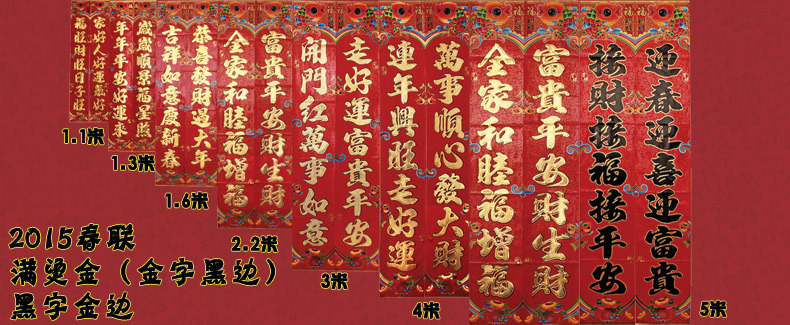 家好人好運氣好
福旺財旺日子旺
1.1米
歲歲順景福星照
年年平安好運來
1.3米
恭喜發財過大年
吉祥如意慶新春
1.6米
富貴平安財生財
全家和睦福增福
2.2米
走好運富貴平安
開門紅萬事如意
3米
萬事順心發大財
連年興旺走好運
4米
富貴平安財生財
全家和睦福增福
迎春迎喜迎富貴
接財接福接平安
5米
2015春联
满烫金（金字黑边）
黑字金边